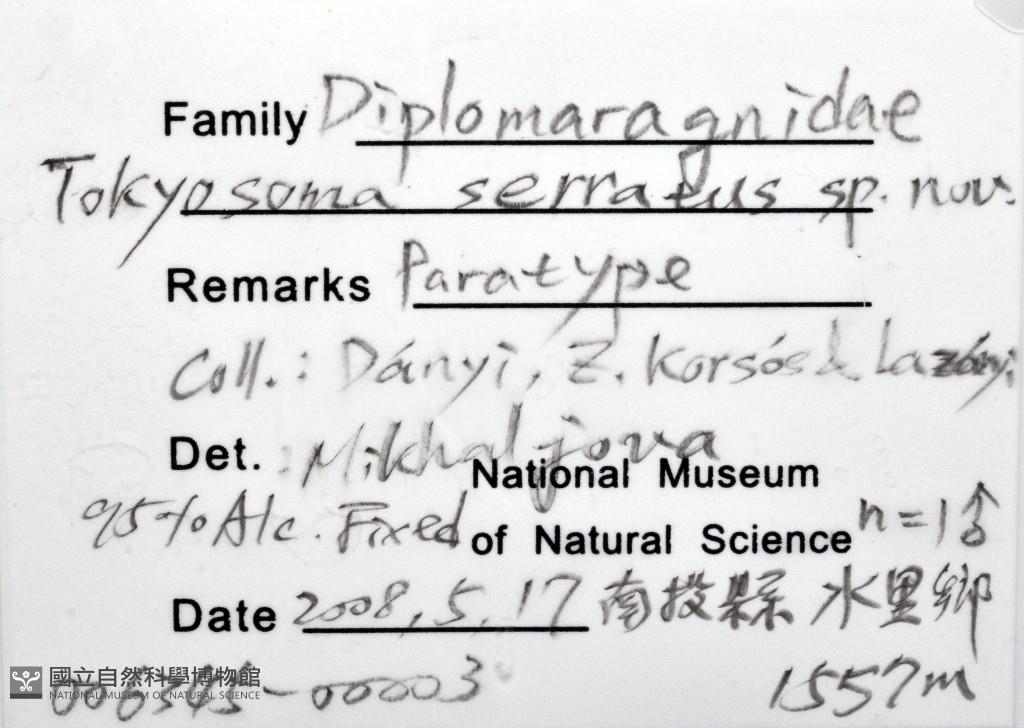 Family Diplomaragnidae
Tokyosoma serratus sp. nov.
Remarks Paratype
Coll.: Dányi, Z. Korsós & Lazányi
Det. : Mikhaljova
National Museum
95% Alc. Fixed of Natural Science n=1♂
Date 2008,5,17 南投縣 水里鄉
國立自然科學博物館
NATIONAL MUSEUM OF NATURAL SCIENCE
-00003 1557m